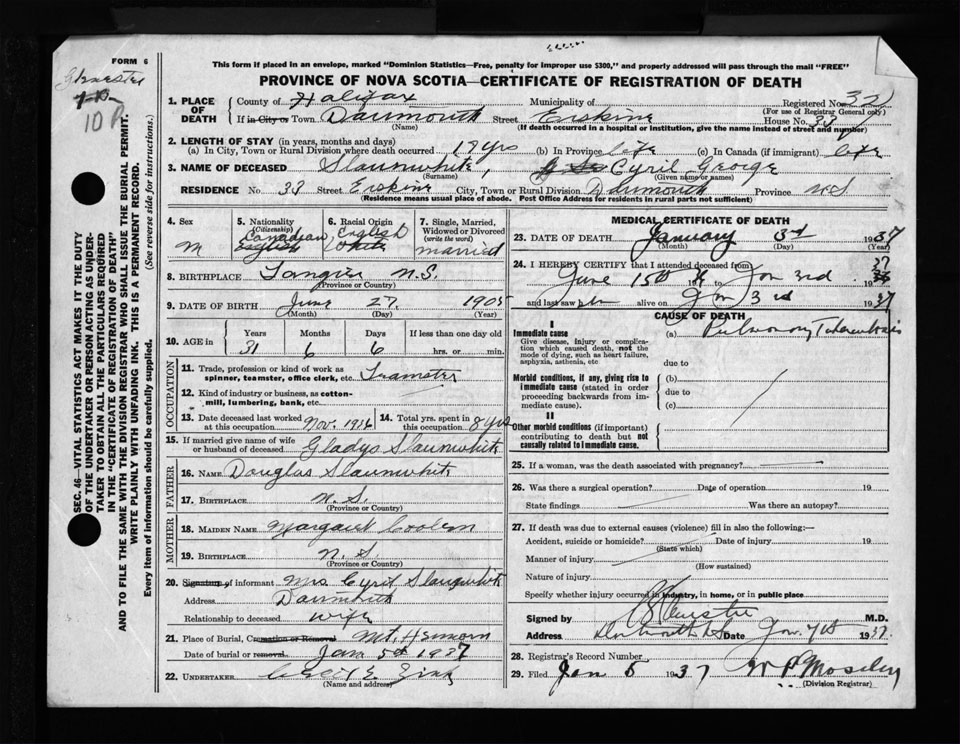 FORM 6
This form if placed in an envelope, marked "Dominion Statistics—Free, penalty for improper use $300," and properly addressed will pass through the mail "FREE"
PROVINCE OF NOVA SCOTIA—CERTIFICATE OF REGISTRATION OF DEATH
10
SEC. 46—VITAL STATISTICS ACT MAKES IT THE DUTY
OF THE UNDERTAKER OR PERSON ACTING AS UNDER-
TAKER TO OBTAIN ALL THE PARTICULARS REQUIRED
IN THE "CERTIFICATE OF REGISTRATION OF DEATH"
AND TO FILE THE SAME WITH THE DIVISION REGISTRAR WHO SHALL ISSUE THE BURIAL PERMIT.
WRITE PLAINLY WITH UNFADING INK. THIS IS A PERMANENT RECORD.
Every item of information should be carefully supplied. (See reverse side for instructions.)
1. PLACE OF DEATH County of Halifax Municipality of Registered No. 32
(For use of Registrar General only)
If in City or Town Dartmouth Street Erskine House No. 33
(Name) (If death occurred in a hospital or institution, give the name instead of street and number)
2. LENGTH OF STAY (in years, months and days)
(a) In City, Town or Rural Division where death occurred 18 yrs (b) In Province life (c) In Canada (if immigrant) life
3. NAME OF DECEASED Slaunwhite, Cyril George
(Surname) (Given name or names)
RESIDENCE No. 33 Street Erskine City, Town or Rural Division Dartmouth Province N.S
(Residence means usual place of abode. Post Office Address for residents in rural parts not sufficient)
4. Sex M
5. Nationality (Citizenship) Canadian English
6. Racial Origin English White
7. Single, Married, Widowed or Divorced (write the word) married
8. BIRTHPLACE Tangier N.S.
(Province or Country)
9. DATE OF BIRTH June 27, 1905
(Month) (Day) (Year)
10. AGE in Years Months Days If less than one day old
31 6 6 hrs. or min.
OCCUPATION
11. Trade, profession or kind of work as
spinner, teamster, office clerk, etc. Teamster
12. Kind of industry or business, as cotton-
mill, lumbering, bank, etc.
13. Date deceased last worked at this occupation Nov. 1936
14. Total yrs. spent in this occupation 8 yrs
15. If married give name of wife
or husband of deceased Gladys Slaunwhite
FATHER
16. NAME Douglas Slaunwhite
17. BIRTHPLACE N.S.
(Province or Country)
MOTHER
18. MAIDEN NAME Margaret
19. BIRTHPLACE N.S.
(Province or Country)
20. Signature of informant Mrs Cyril Slaunwhite
Address Dartmouth
Relationship to deceased wife
21. Place of Burial, Cremation or Removal Mt. Hermon
Date of burial or removal Jan 5th 1937
22. UNDERTAKER
(Name and address)
MEDICAL CERTIFICATE OF DEATH
23. DATE OF DEATH January 3rd 1937
(Month) (Day) (Year)
24. I HEREBY CERTIFY that I attended deceased from
June 15th to Jan 3rd 1937
and last saw h im alive on Jan 3rd 1937
CAUSE OF DEATH
I
Immediate cause (a) Pulmonary Tuberculosis
Give disease, injury or complica-
tion which caused death, not the
mode of dying, such as heart failure,
asphyxia, asthenia, etc due to
Morbid conditions, if any, giving rise to (b)
immediate cause (stated in order due to
proceeding backwards from im-
mediate cause). (c)
II
Other morbid conditions (if important)
contributing to death but not
causally related to immediate cause.
25. If a woman, was the death associated with pregnancy?
26. Was there a surgical operation? Date of operation 19
State findings Was there an autopsy?
27. If death was due to external causes (violence) fill in also the following:
Accident, suicide or homicide? Date of injury 19
(State which)
Manner of injury
(How sustained)
Nature of injury
Specify whether injury occurred in industry, in home, or in public place
Signed by M.D.
Address Dartmouth NS Date Jan. 7th 1937.
28. Registrar's Record Number
29. Filed Jan 5 1937 W P Moseley
(Division Registrar)